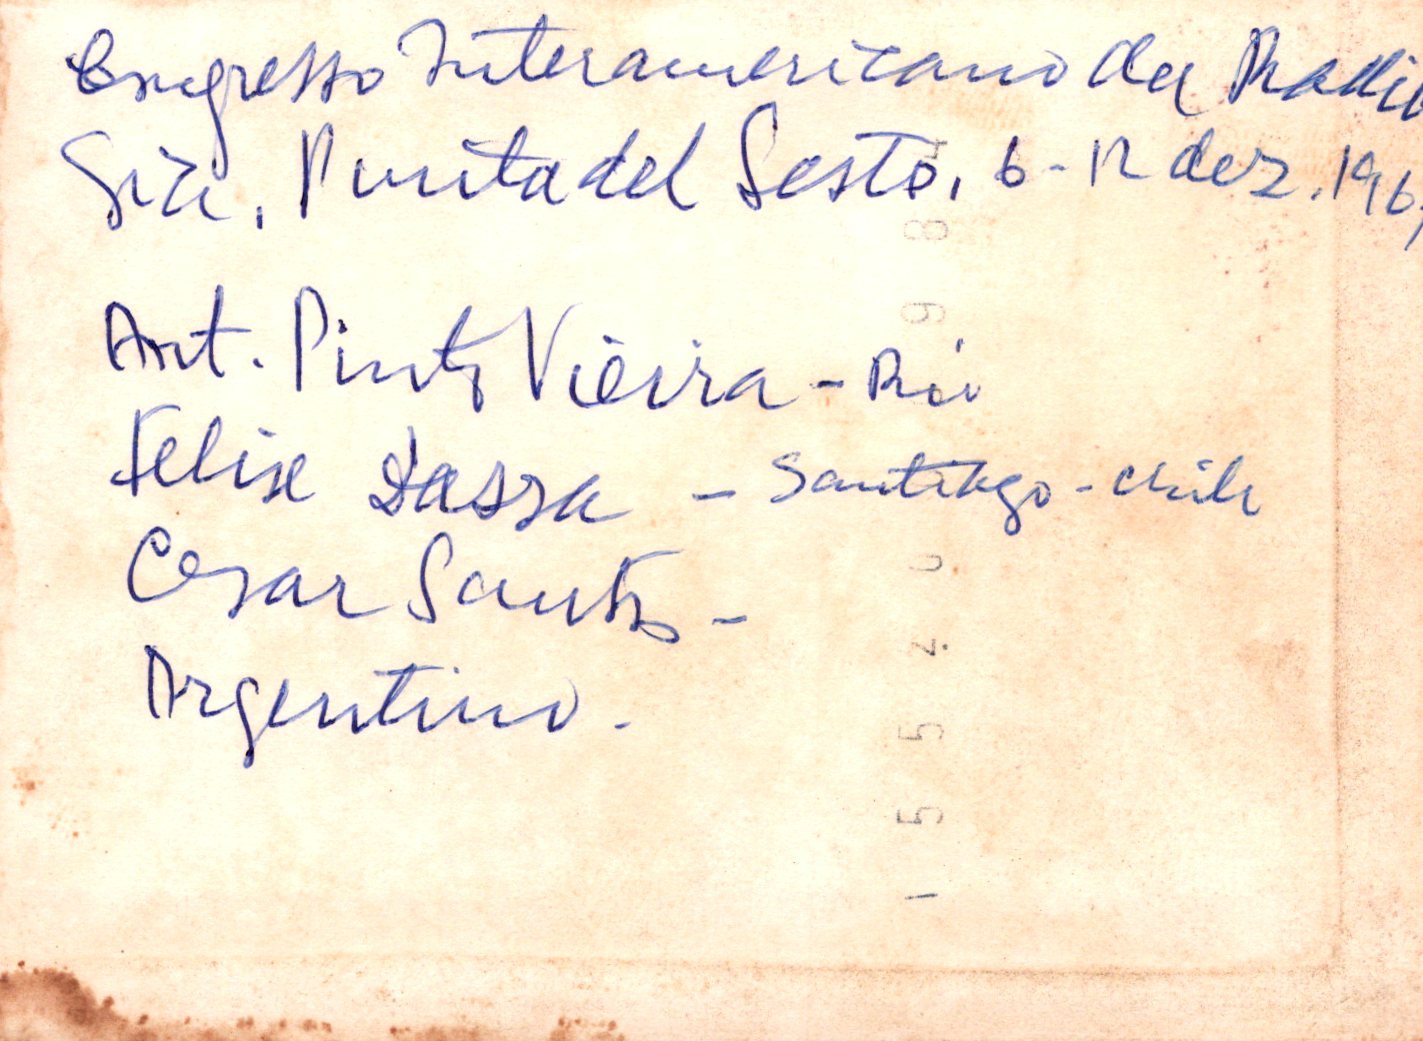 Congresso Interamericano de Radio
gia, Punta del Leste, 6-12 dez. 196
Ant. Pinto Vieira - Rio
Felix - Santiago - Chile
Cesar Santos -
Argentino.